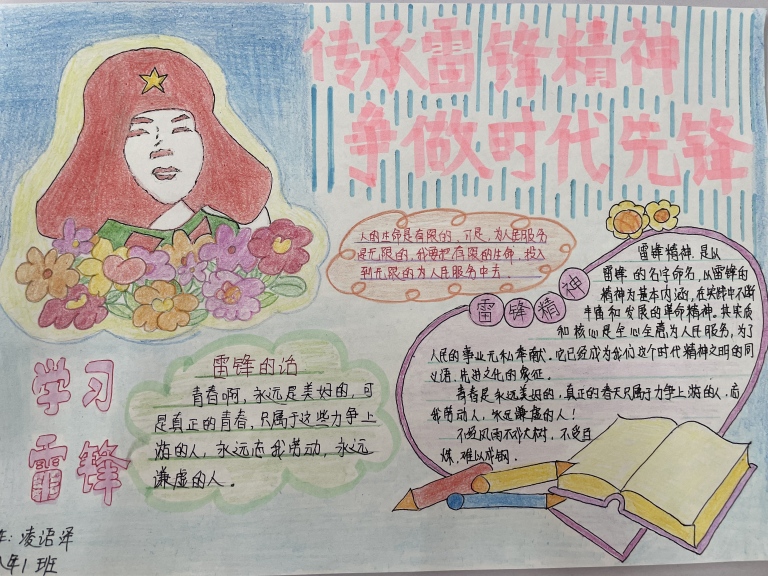 传承雷锋精神
争做时代先锋
人的生命是有限的，可是，为人民服务
是无限的，我要把有限的生命，投入
到无限的为人民服务中去。
雷锋精神
雷锋精神，是以
雷锋的名字命名，以雷锋的
精神为基本内涵，在实践中不断
丰富和发展的革命精神，其实质
和核心是全心全意为人民服务，为了
人民的事业无私奉献。它已经成为我们这个时代精神文明的同
义语、先进文化的象征。
青春是永远美好的，真正的春天只属于力争上游的人，
我劳动人，永远谦虚的人！
不经风雨不成大树，不受百
炼，难以成钢。
学习
雷锋
雷锋的话
青春啊，永远是美好的，可
是真正的青春，只属于这些力争上
游的人，永远忘我劳动，永远
谦虚的人。
凌语泽
年1班